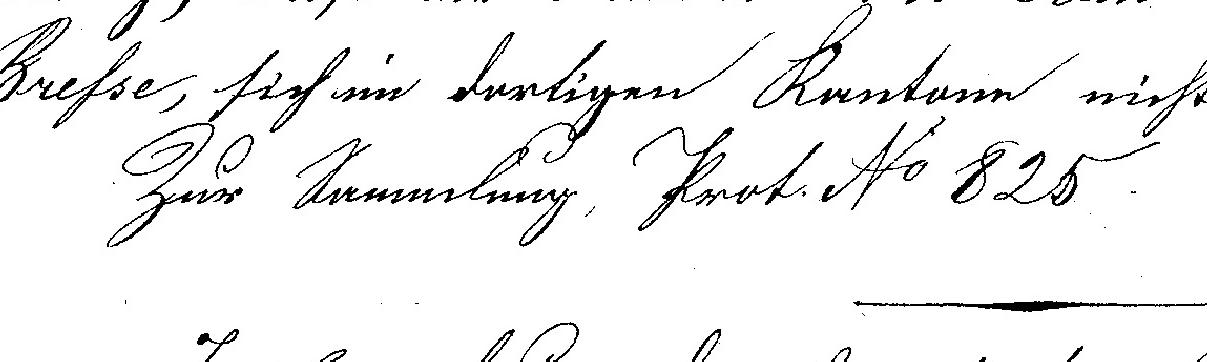 Bresse, sich im dortigen Kantone nicht
Zur Sammlung, Prot. No 825.